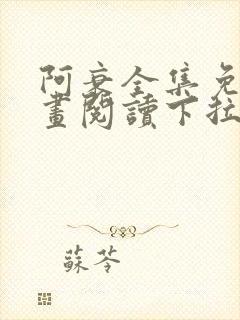 阿衰全集免
畫閱讀下拉
蘇苓